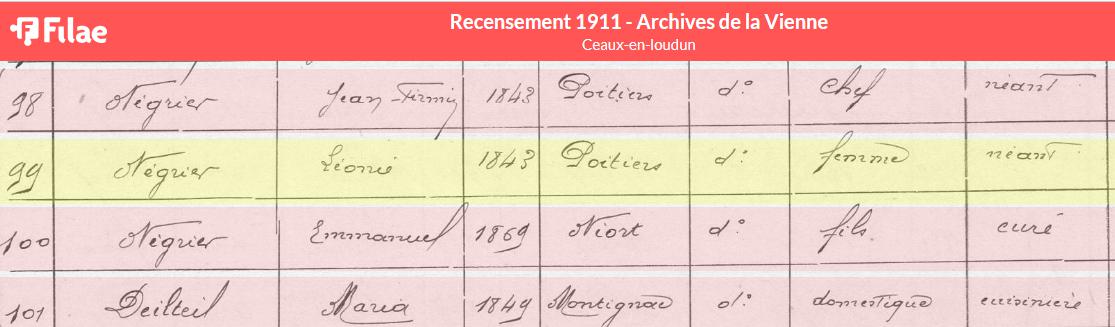 Filae
Recensement 1911 - Archives de la Vienne
Ceaux-en-loudun
98 Négrier Jean-Firmin 1843 Poitiers d° Chef néant
99 Négrier Léonie 1843 Poitiers d° femme néant
100 Négrier Emmanuel 1869 Niort d° fils curé
101 Deilteil Maria 1849 Montignac d° domestique cuisinière